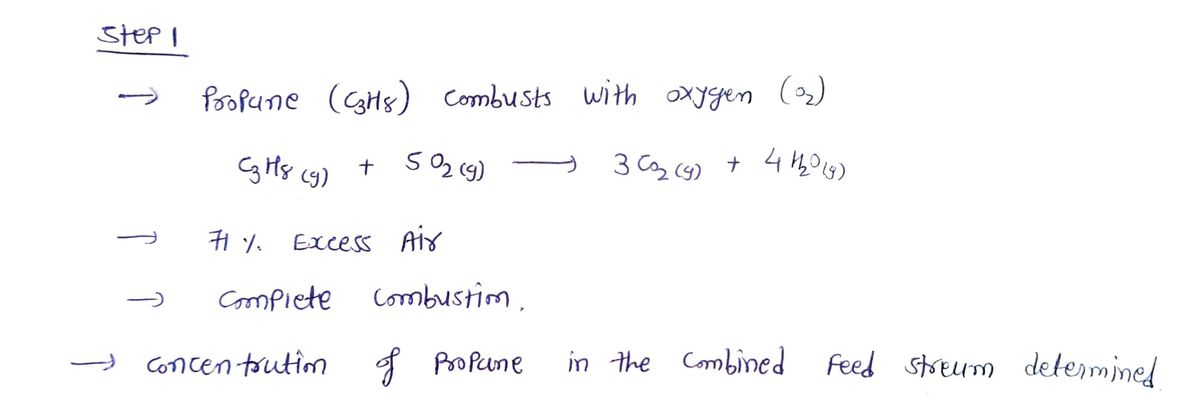 Step 1
→ Propane (C3H8) combusts with oxygen (O2)
C3H8 (g) + 5 O2 (g) → 3 CO2 (g) + 4 H2O (g)
→ 71 % Excess Air
→ Complete combustion.
→ concentration of propane in the combined feed stream determined